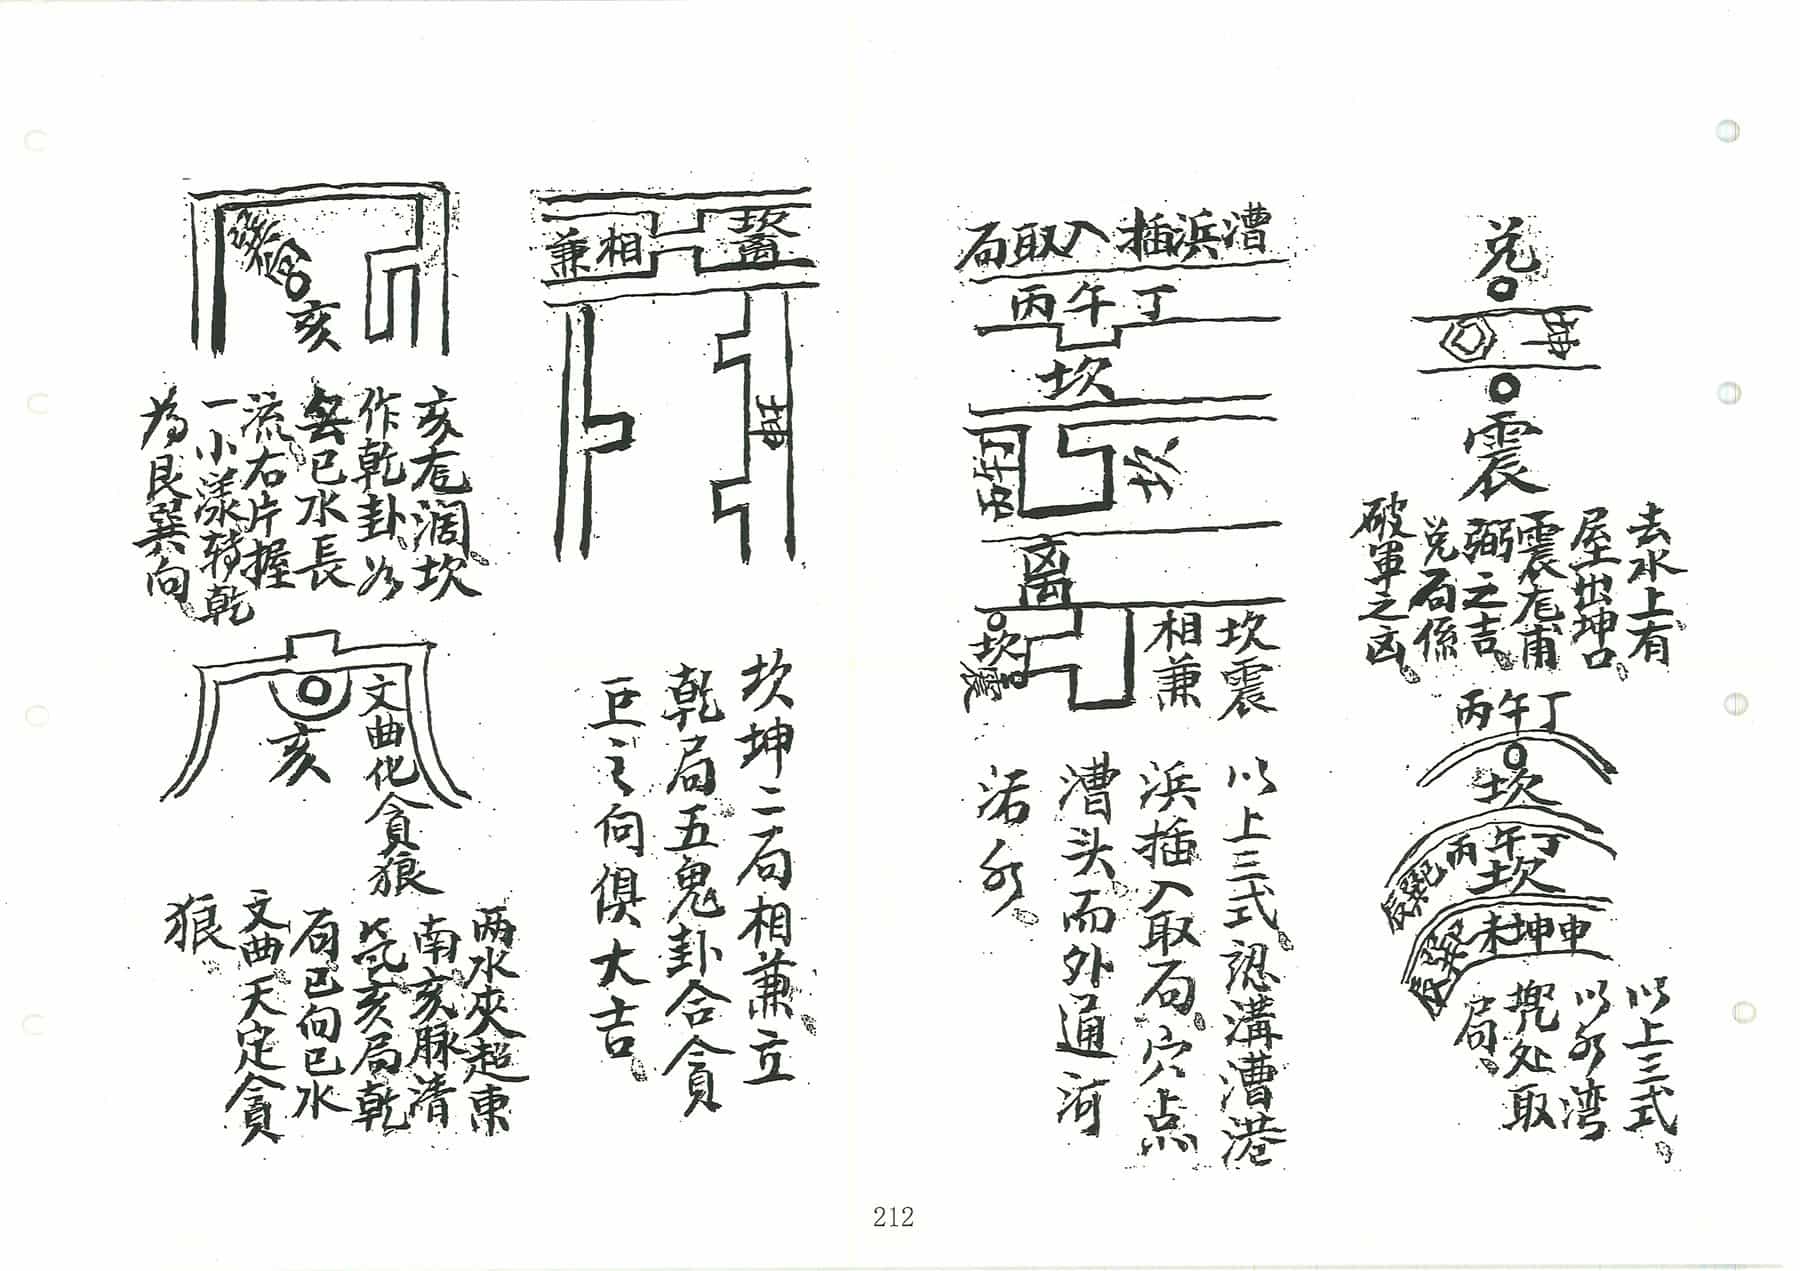 兑
坤
震
去水上有
屋出坤口
震龙甫
弼之吉
兑局係
破軍之凶
丙午丁
坎
丙午丁
坎
未坤申
以上三式
以水湾
兜处取
局
漕浜插入取局
丙午丁
坎
离
坎震
坎震
相兼
以上三式認溝漕港
浜插入取局穴点
漕头而外通河
活水
坎離
相兼
坤
坎坤二局相兼立
乾局五鬼卦合貪
巨之向俱大吉
亥
亥龙濶坎
作乾卦水
癸巳水長
流右片握
一小漾转乾
為艮巽向
亥
文曲化貪狼
两水夾超東
南亥脉清
氣亥局乾
局巳向巳水
文曲天定貪
狼
212